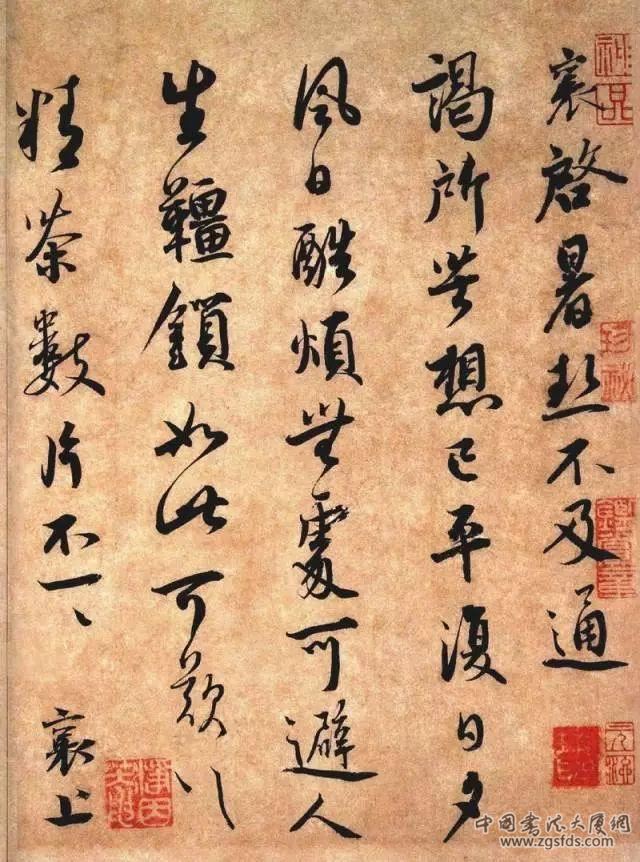 襄啓暑熱不及通
謁所苦想已平復日夕
風日酷煩無處可避人
生韁鎖如此可歎〻
精茶數片不一〻
襄上
神品
珍秘
中国书法大厦网
www.zgsfds.com